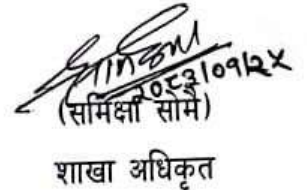 २०८३।०१।२४
(समिक्षा सोमै)
शाखा अधिकृत